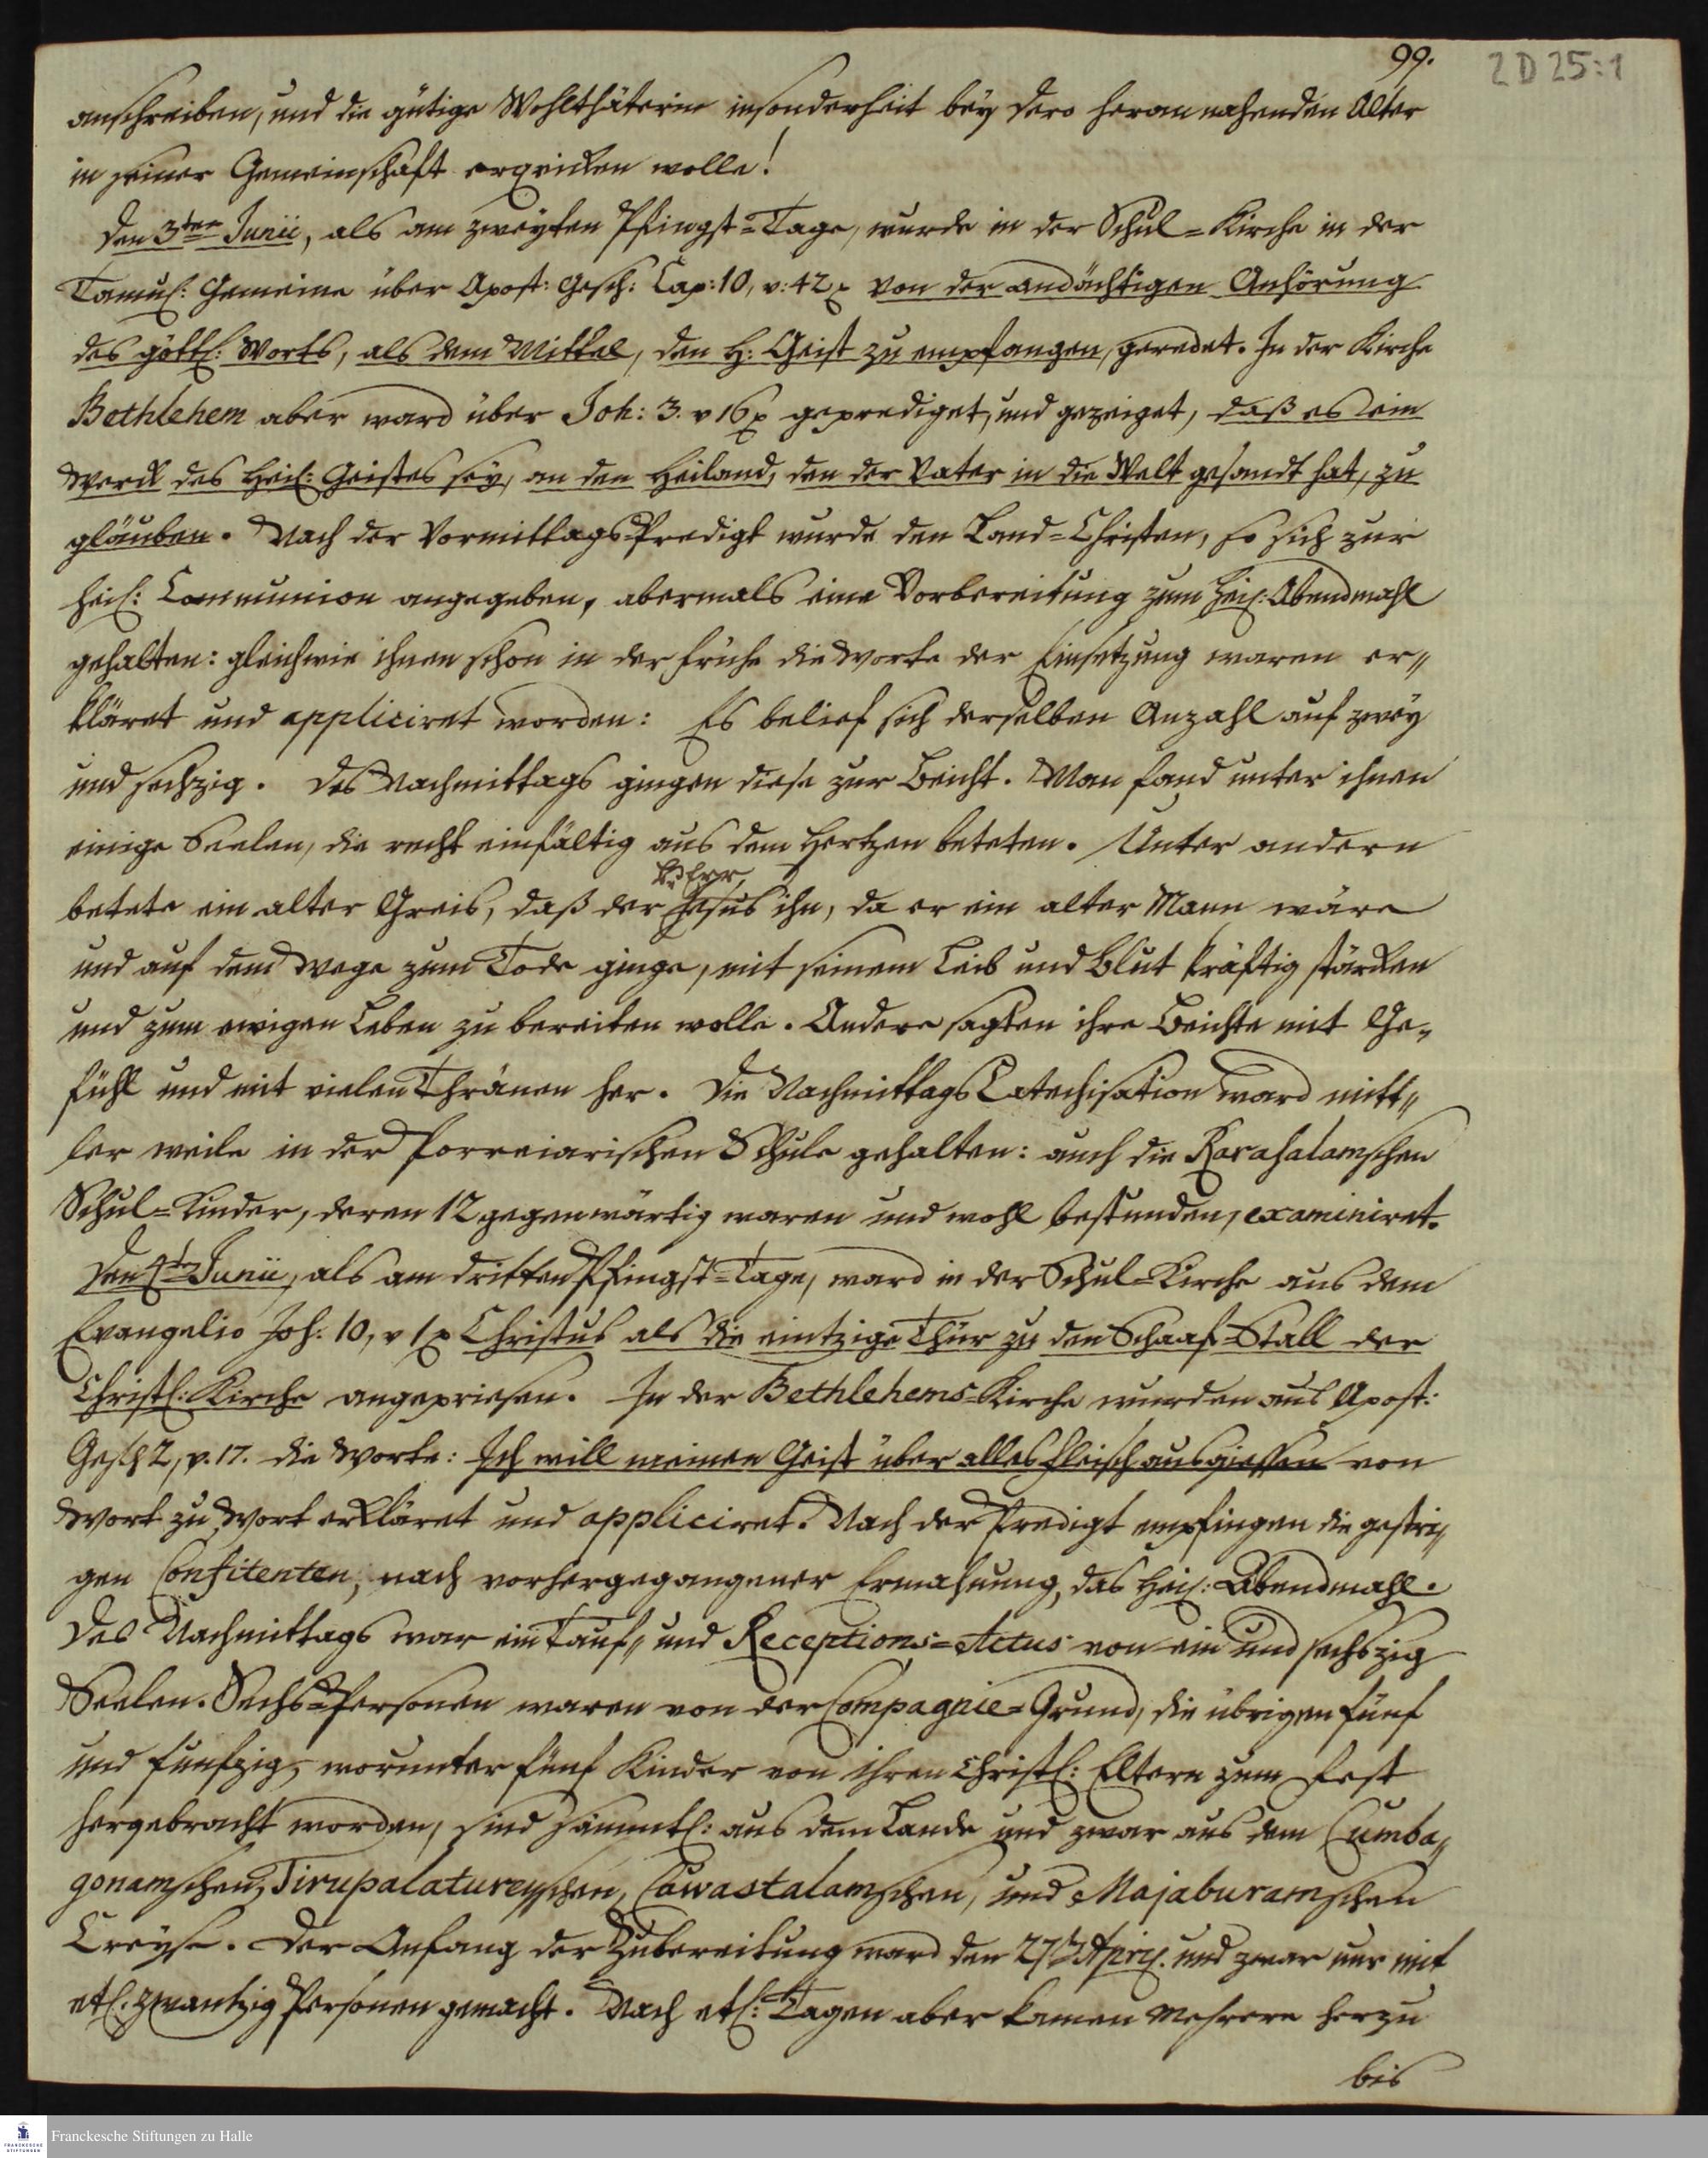 99.
2 D 25:1
anschreiben, und die gütige Wohlthäterin insonderheit bey dero herannahenden Alter
in seiner Gemeinschaft erqvicken wolle!
Den 3ten Junii, als am zweyten Pfingst=Tage, wurde in der Schul=Kirche in der
Tamul: Gemeine über Apost: Gesch: Cap: 10, v: 42 von der andächtigen Anhörung
des göttl: Worts, als dem Mittel, den H: Geist zu empfangen, geredet. In der Kirche
Bethlehem aber ward über Joh: 3. v 16 geprediget, und gezeiget, daß es ein
Werck des Heil: Geistes sey, an den Heiland, den der Vater in die Welt gesandt hat, zu
gläuben. Nach der Vormittags-Predigt wurde den Land=Christen, so sich zur
heil: Communion angegeben, abermals eine Vorbereitung zum heil: Abendmahl
gehalten: gleichwie ihnen schon in der Frühe die Worte der Einsetzung waren er„
kläret und appliciret worden: Es belief sich derselben Anzahl auf zwey
und sechzig. Des Nachmittags gingen diese zur Beicht. Man fand unter ihnen
einige Seelen, die recht einfältig aus dem Hertzen beteten. Unter andern
HErr
betete ein alter Greis, daß der Jesus ihn, da er ein alter Mann wäre
und auf dem Wege zum Tode ginge, mit seinem Leib und Blut kräftig stärcken
und zum ewigen Leben zu bereiten wolle. Andere sagten ihre Beichte mit Ge„
fühl und mit vielen Thränen her. Die Nachmittags Catechisation ward mitt„
ler weile in der Porreiarischen Schule gehalten: auch die Karahalamschen
Schul=Kinder, deren 12 gegenwärtig waren und wohl bestunden, examiniret.
Den 4ten Junii, als am dritten Pfingst=Tage, ward in der Schul=Kirche aus dem
Evangelio Joh. 10, v 1 Christus als die eintzige Thür zu den Schaaf=Stall der
Christl: Kirche angepriesen. In der Bethlehems=Kirche wurden aus Apost:
Gesch 2, v. 17. die Worte: Ich will meinen Geist über alles Fleisch ausgiessen von
Wort zu Wort erkläret und appliciret. Nach der Predigt empfingen die gestri„
gen Confitenten, nach vorhergegangener Ermahnung, das Heil: Abendmahl.
Des Nachmittags war ein Tauf„ und Receptions=Actus von ein und sechszig
Seelen. Sechs Personen waren von der Compagnie=Grund, die übrigen fünf
und funfzig, worunter fünf Kinder von ihren Christl: Eltern zum Fest
hergebracht worden, sind sämmtl: aus dem Lande und zwar aus dem Cumba„
gonamschen, Tirupalatureyschen, Cawastalamschen, und Majaburamschen
Creyse. Der Anfang der Zubereitung ward den 27ten April. und zwar nur mit
etl. zwantzig Personen gemacht. Nach etl: Tagen aber kamen mehrere herzu
bis
FRANCKESCHE
STIFTUNGEN
Franckesche Stiftungen zu Halle